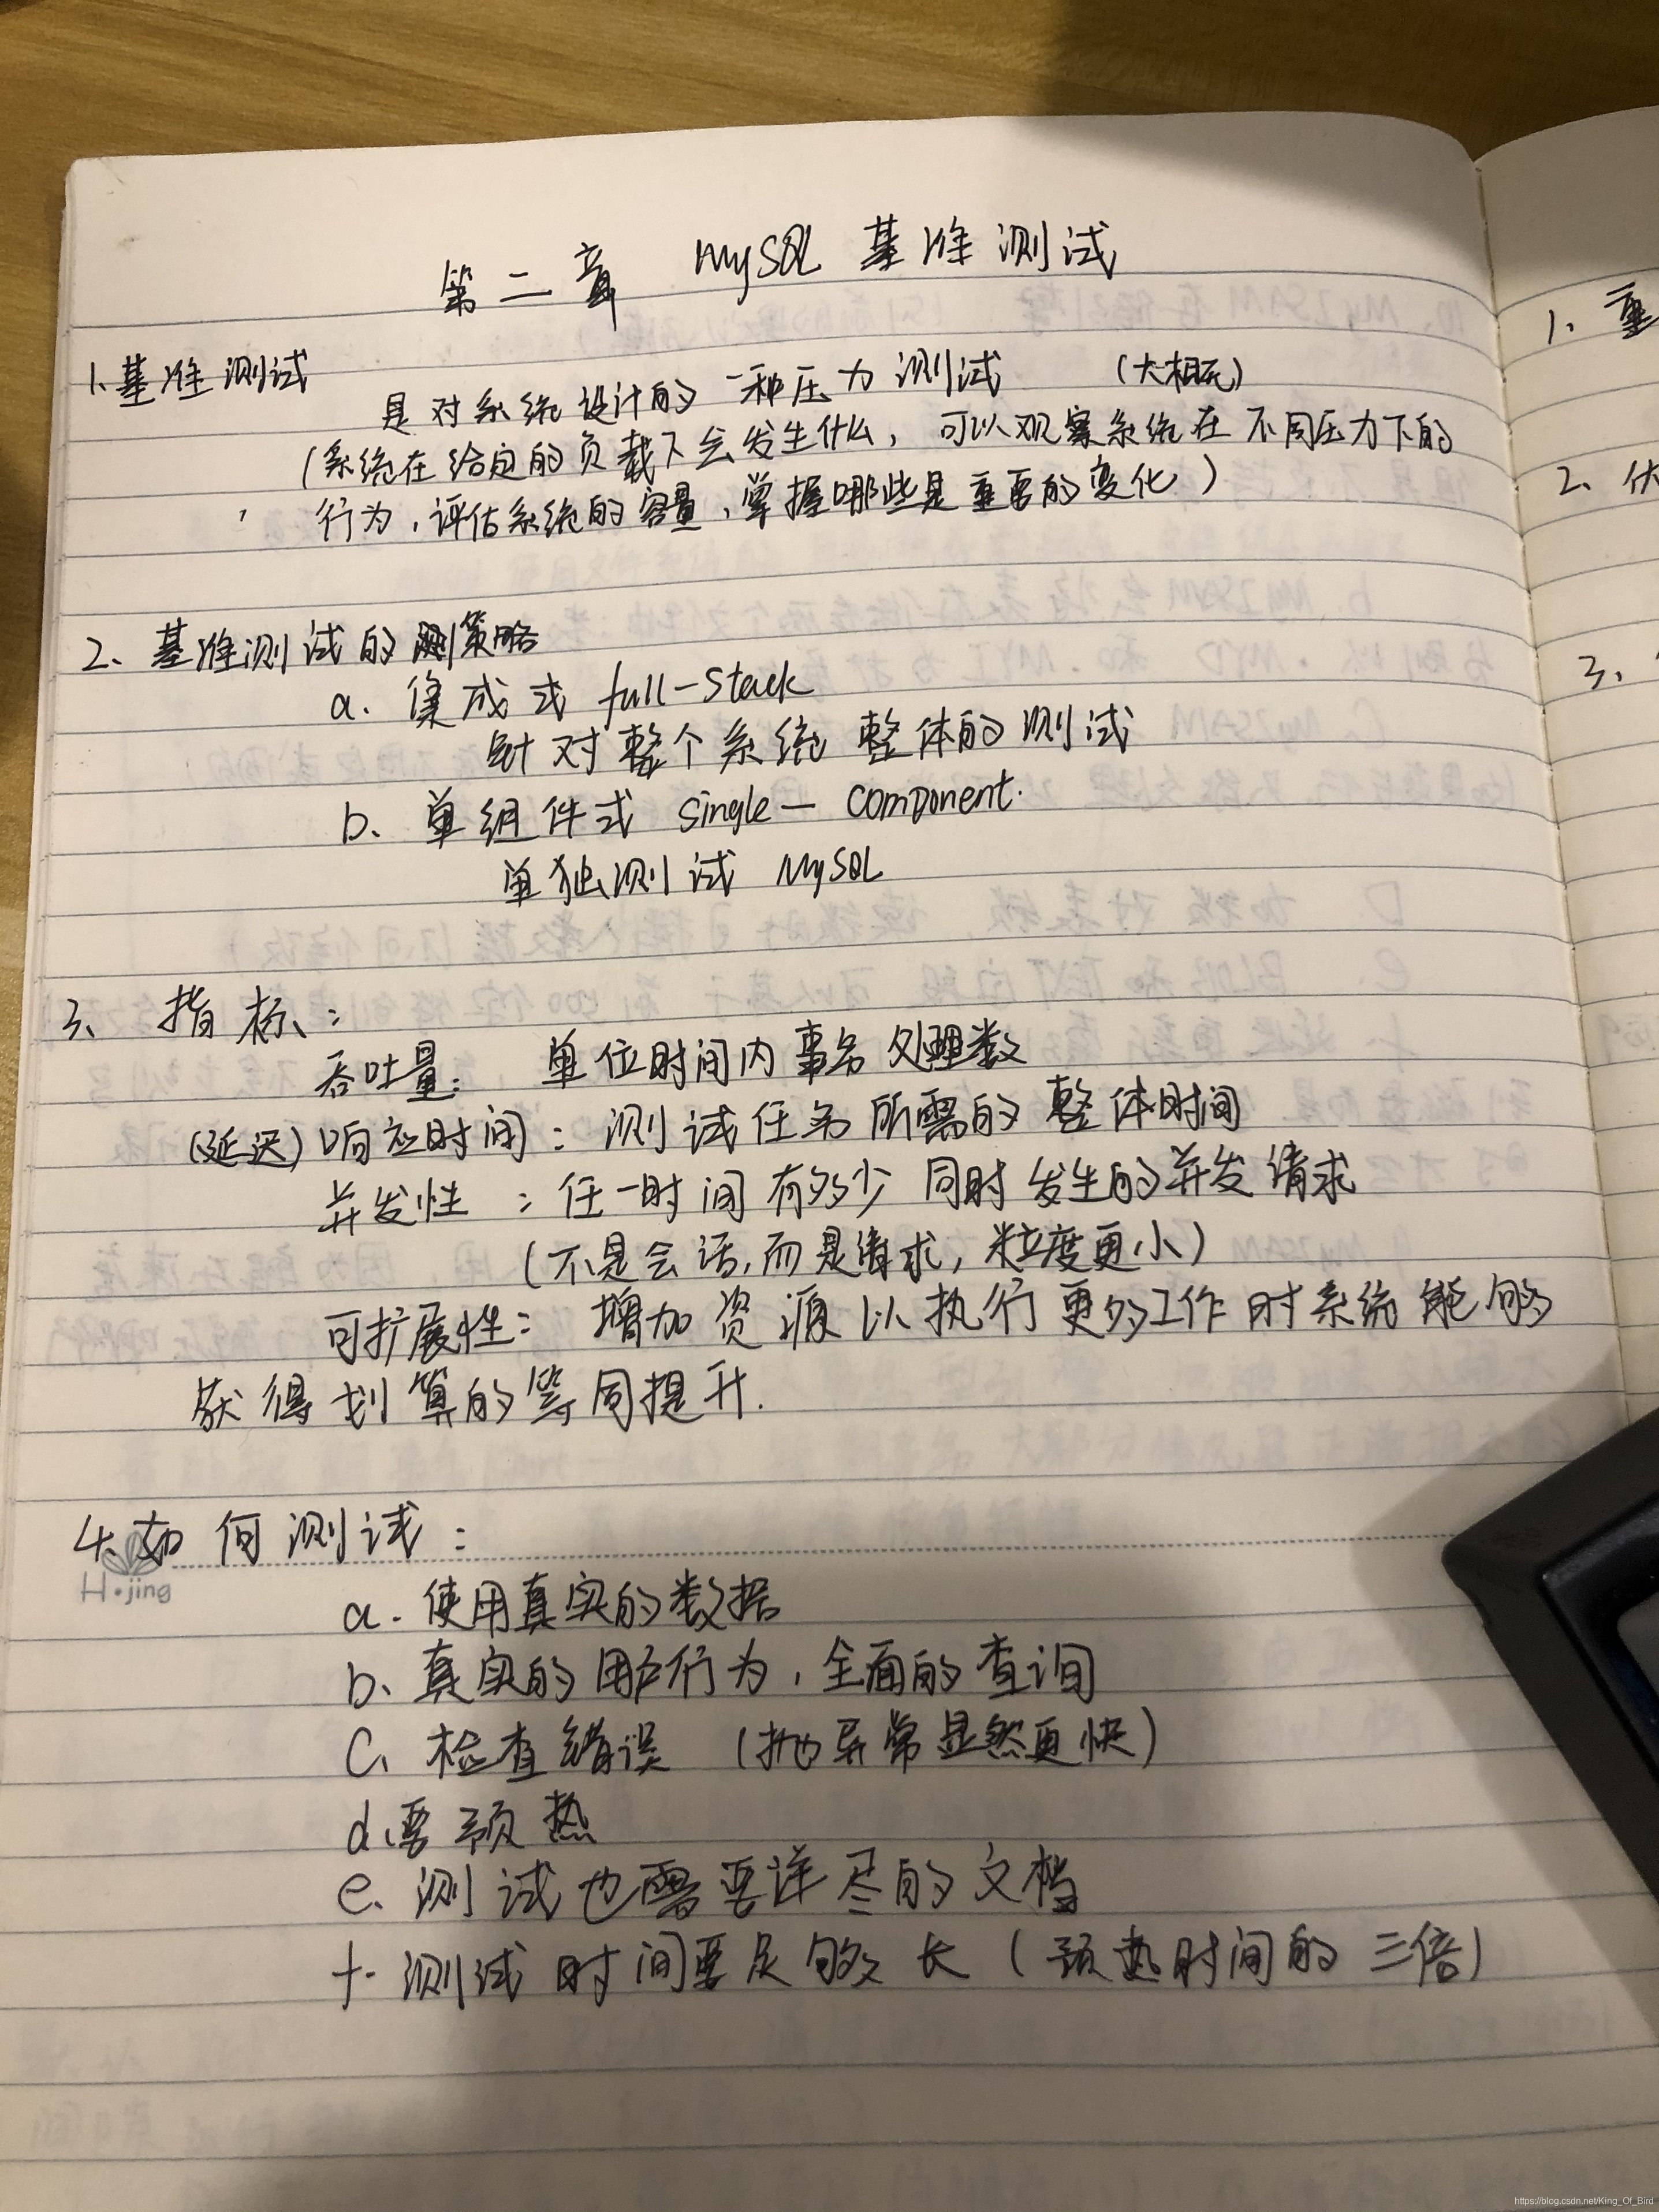 第二章 MySQL 基准测试
1.基准测试
是对系统设计的一种压力测试 (大概)
(系统在给定的负载下会发生什么，可以观察系统在不同压力下的
行为，评估系统的容量，掌握哪些是重要的变化)
2、基准测试的策略
a. 集成式 full-stack
针对整个系统 整体的测试
b、单组件式 single— component.
单独测试 MySQL
3、指标：
吞吐量： 单位时间内事务处理数
(延迟) 响应时间：测试任务所需的整体时间
并发性 ：任一时间有多少同时发生的并发请求
(不是会话,而是请求，粒度更小)
可扩展性： 增加资源以执行更多工作时系统能够
获得划算的等同提升.
4、如何测试：
H·jing
a. 使用真实的数据
b、真实的用户行为，全面的查询
c、检查错误 (抛异常显然更快)
d、要预热
e、测试也需要详尽的文档
f. 测试时间要足够长 (预热时间的三倍)
1、重
2、
3、
https://blog.csdn.net/King_Of_Bird